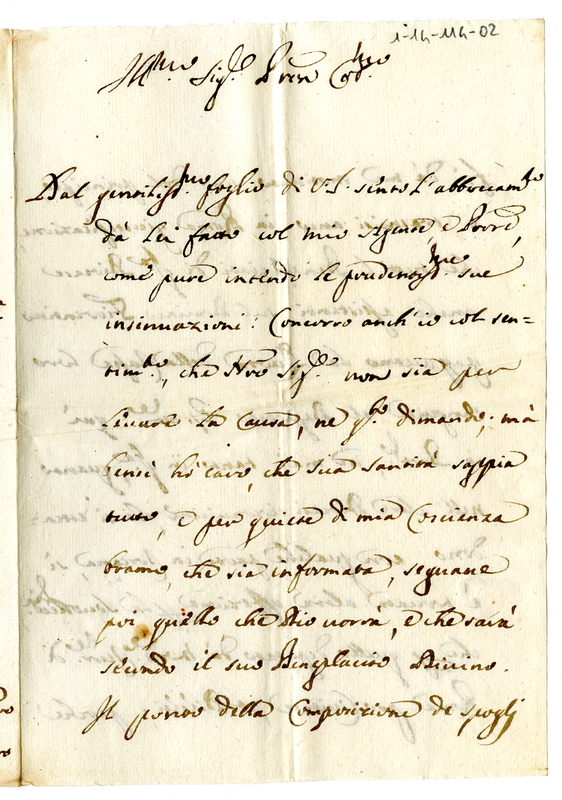 1-14-114-02
Ill.mo Sig.r Pron Col.mo
Dal gentiliss.mo foglio di V.S. sento l'abboccam.to
dà Lei fatto col mio Agente, e Proré,
come pure intendo le prudentiss.me sue
insinuazioni: Concorro anch'io col sen=
tim.to, che Nro Sig.re non sia per
levare la Causa, ne q.to dimando; mà
bensi hò caro, che sua santità sappia
tutto, e per quiete di mia Coscianza
bramo, che sia informata, seguane
poi quello che Dio vorrà, e che sarà
secondo il suo Beneplacito Divino.
Il ponto della Composizione de spoglj